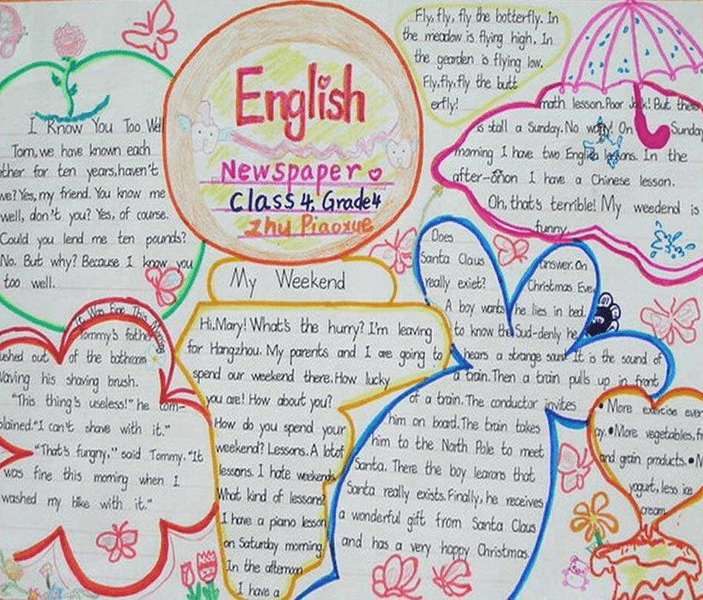 English
Newspaper
Class 4. Grade 4
Zhu Piaoxue
I Know You Too Well
Tom, we have known each
other for ten years, haven't
we? Yes, my friend. You know me
well, don't you? Yes, of course.
Could you lend me ten pounds?
No. But why? Because I know you
too well.
It Was Fine This Morning
Tommy's father
ushed out of the bathroom
waving his shaving brush.
"This thing's useless!" he com-
plained. "I can't shave with it."
"That's fungny," said Tommy. "It
was fine this morning when I
washed my bike with it."
My Weekend
Hi, Mary! What's the hurry? I'm leaving
for Hangzhou. My parents and I are going to
spend our weekend there. How lucky
you are! How about you?
How do you spend your
weekend? Lessons. A lot of
lessons. I hate weekends
What kind of lessons?
I have a piano lesson
on Saturday morning.
In the afternoon
I have a
math lesson. Poor Jack! But there
is stall a Sunday. No worry! On Sunday
morning I have two English lessons. In the
after-onon I have a Chinese lesson.
Oh, that's terrible! My weedend is
funny.
Fly, fly, fly the botterfly. In
the meadow is flying high. In
the gearden is flying low.
Fly, fly, fly the butt
erfly!
Does
Santa Claus
really exiet?
A boy wants
to know the
answer. On
Christmas Eve,
he lies in bed.
Sud-denly he
hears a strange sound. It is the sound of
a train. Then a train pulls up in front
of a train. The conductor invites
him on board. The train takes
him to the North Pole to meet
Santa. There the boy learons that
Santa really exists. Finally, he receives
a wonderful gift from Santa Claus
and has a very happy Christmas.
• More exercise ever
ay. • More vegetables, fr
and grain products. • M
yogurt, less ice
cream.